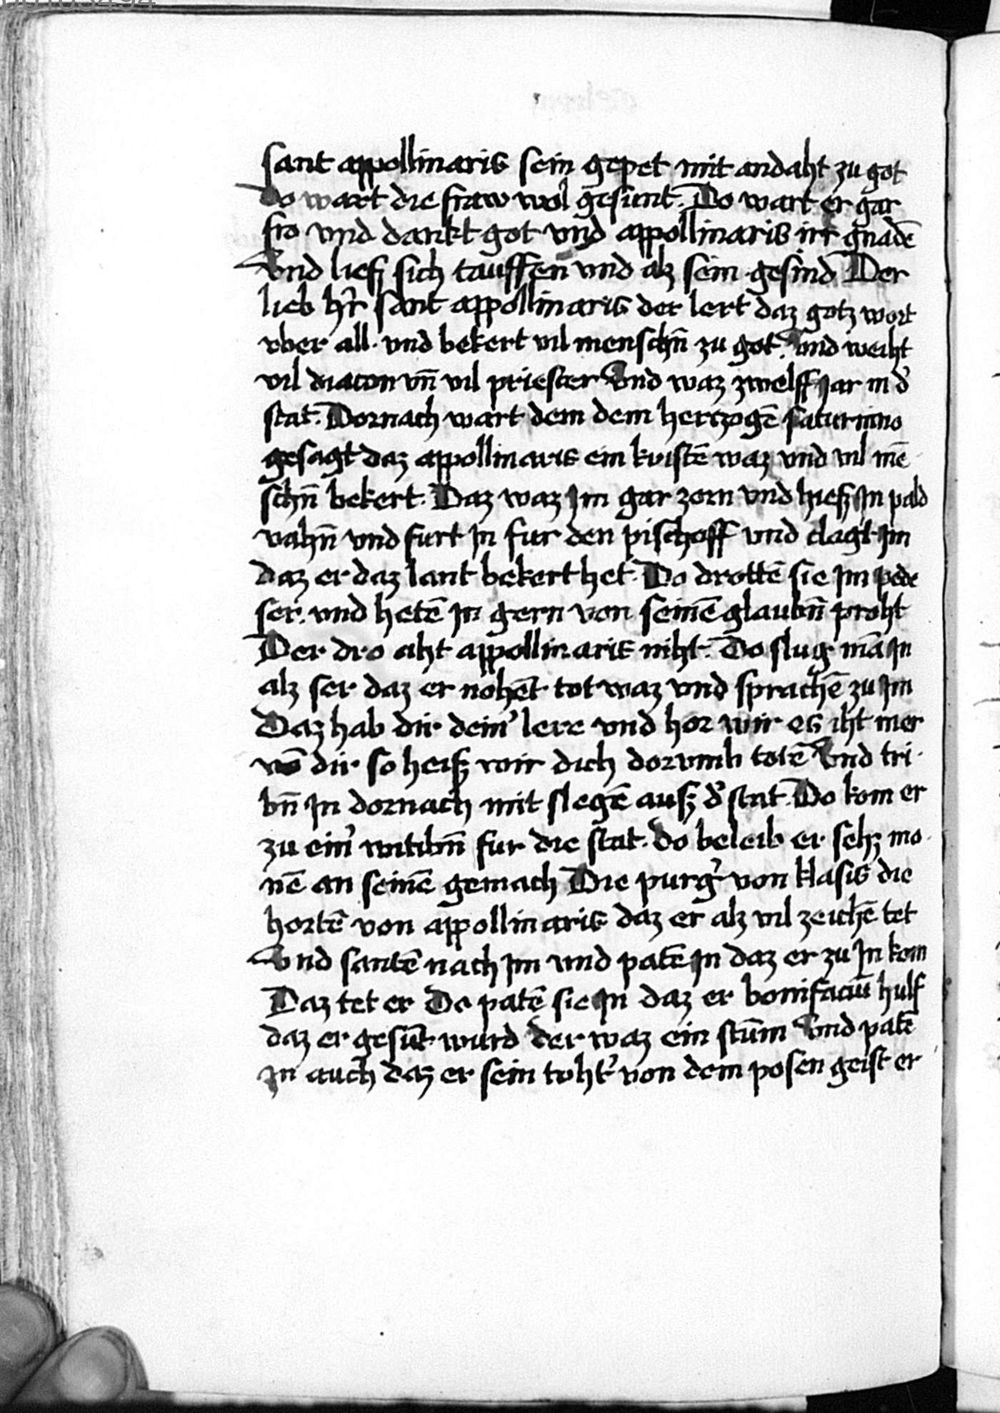 sant appollinaris sein gepet mit andaht zu got
Do wart die fraw wol gesunt. Do wart er gar
fro vnd dankt got vnd appollinaris irr gnadē
Vnd liesz sich tauffen vnd alz sein gesind Der
lieb hʼr sant appollinaris der lert daz gotz wort
vber all. vnd bekert vil menschn̄ zu got. Vnd weiht
vil diacon vn̄ vil priester Vnd waz zwelff Jar in dʼ
stat. Dornach wart dem dem hertzogē saturnino
gesagt daz appollinaris ein kristē waz vnd vil mē
schn̄ bekert. Daz waz Im gar zorn vnd hiesz In pald
vahn̄ vnd furt In fur den pischoff vnd clagt Im
daz er daz lant bekert het. Do drottē sie Im pede
ser. vnd hetē In gern von seinē glaubn̄ proht
Der dro aht appollinaris niht. Do slug mā In
alz ser daz er nohēt tot waz vnd sprachē zu Im
Daz hab dir deinʼ lere vnd hor wir es iht mer
vō dir so heisz wir dich dorumb totē Vnd tri
bn̄ In dornach mit slegē ausz dʼ stat. Do kom er
zu einʼ witibn̄ fur die stat. do beleib er sehz mo
nē an seinē gemach Die purgʼ von klasis die
hortē von appollinaris daz er alz vil zeichē tet
Vnd santē nach Im vnd patē In daz er zu In kom
Daz tet er Do patē sie In daz er bonifaciū hulf
daz er gesūt wurd der waz ein stūm Vnd patē
In auch daz er sein tohtʼ von dem posen geist er